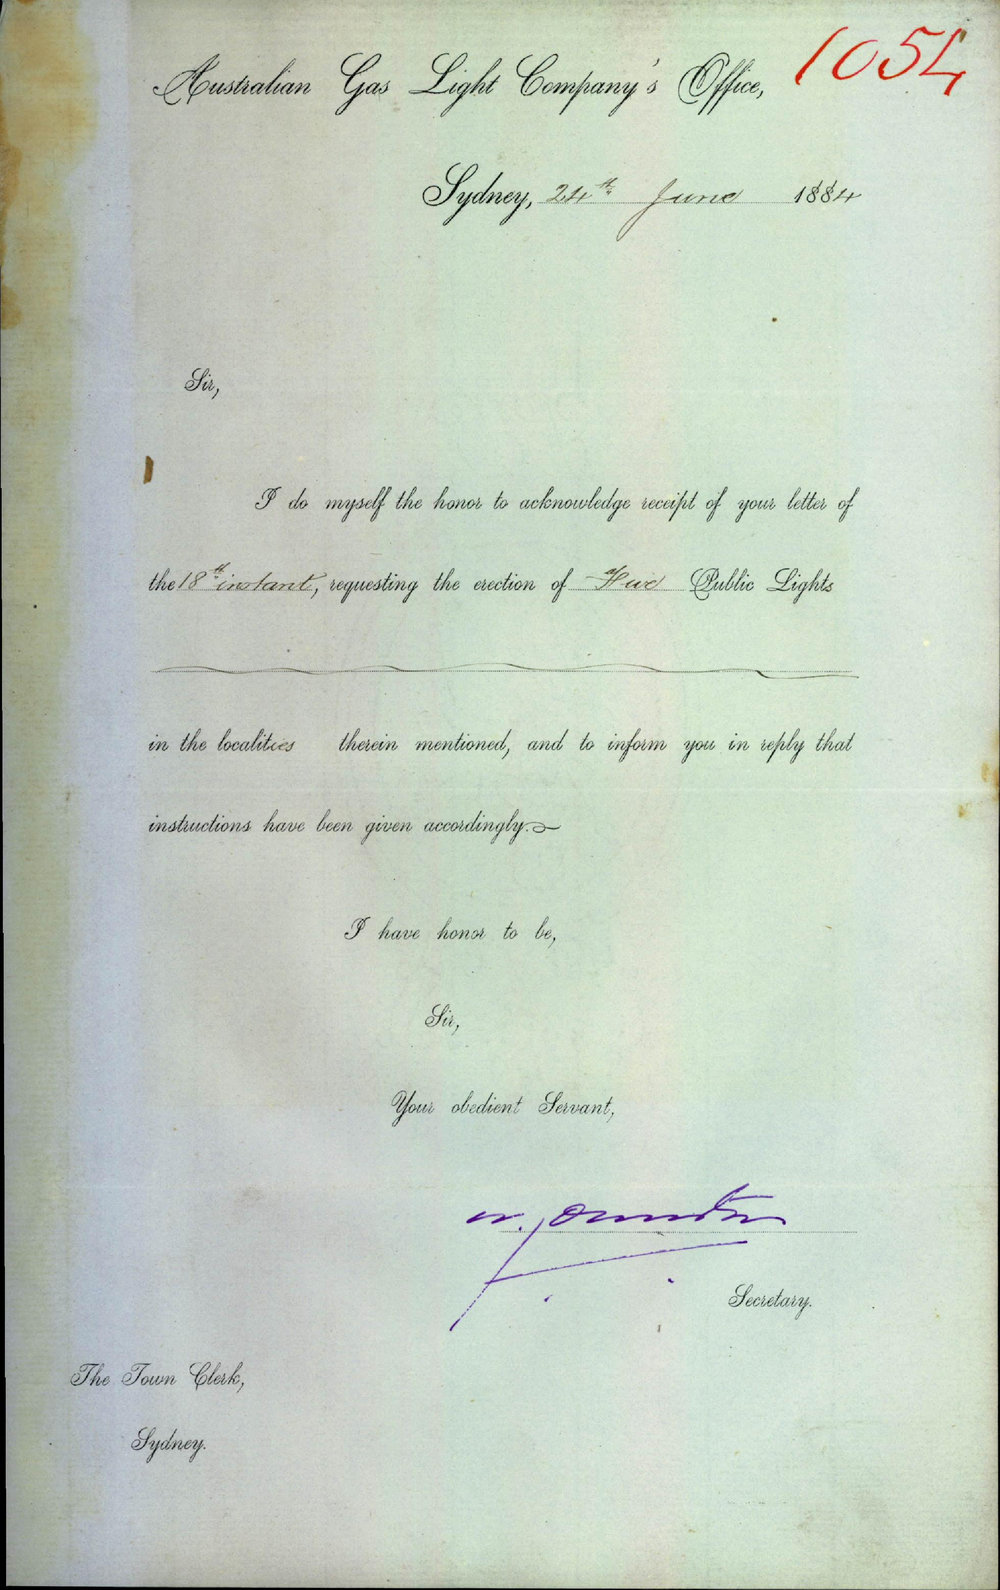 1054
Australian Gas Light Company's Office,
Sydney, 24th June 1884
Sir,
I do myself the honor to acknowledge receipt of your letter of
the 18th instant, requesting the erection of Five Public Lights
in the localities therein mentioned, and to inform you in reply that
instructions have been given accordingly.
I have honor to be,
Sir,
Your obedient Servant,
Secretary.
The Town Clerk,
Sydney.